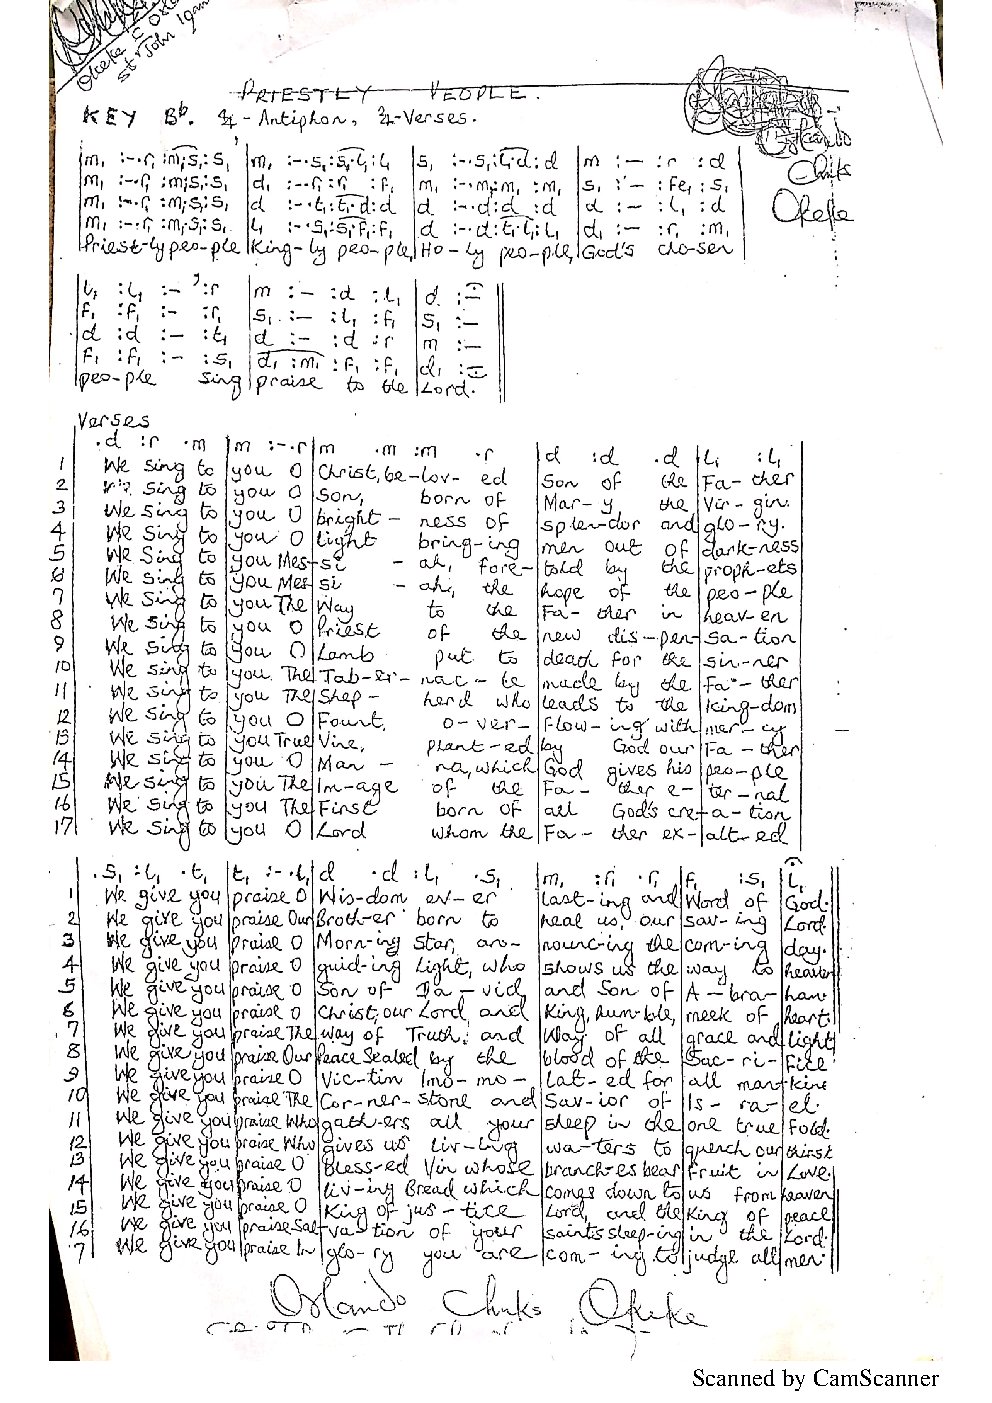 Okeke C
St John
PRIESTLY PEOPLE.
KEY Bb. 4/4-Antiphon, 2/4-Verses.
Orlando
Chuks
Okeke
m₁ :-.r₁ :m₁.s₁:s₁ | m₁ :-.s₁:s₁.l₁:l₁ | s₁ :-.s₁:l₁.d:d | m :- :r :d
m₁ :-.r₁ :m₁.s₁:s₁ | d₁ :-.r₁:r₁ :f₁ | m₁ :-.m₁:m₁ :m₁ | s₁ :- :fe₁ :s₁
m₁ :-.r₁ :m₁.s₁:s₁ | d :-.t₁:t₁.d:d | d :-.d:d :d | d :- :l₁ :d
m₁ :-.r₁ :m₁.s₁:s₁ | l₁ :-.s₁:s₁.f₁:f₁ | d :-.d:t₁.l₁:l₁ | d₁ :- :r₁ :m₁
Priest-ly peo-ple | King-ly peo-ple, | Ho-ly peo-ple, | God's cho-sen
l₁ :l₁ :- ' :r | m :- :d :l₁ | d :-
f₁ :f₁ :- :r₁ | s₁ :- :l₁ :f₁ | s₁ :-
d :d :- :t₁ | d :- :d :r | m :-
f₁ :f₁ :- :s₁ | d₁ :m₁ :f₁ :f₁ | d₁ :-
peo-ple sing | praise to the | Lord.
Verses
.d :r .m | m :-.r | m .m :m .r | d :d .d | l₁ :l₁
1 We sing to | you O | Christ, be-lov-ed | Son of the | Fa-ther
2 We sing to | you O | Son, born of | Mar-y the | Vir-gin.
3 We sing to | you O | bright-ness of | splen-dor and | glo-ry.
4 We sing to | you O | light bring-ing | men out of | dark-ness
5 We sing to | you Mes-|si-ah, fore-|told by the | proph-ets
6 We sing to | you Mes-|si-ah, the | hope of the | peo-ple
7 We sing to | you The | Way to the | Fa-ther in | heav-en
8 We sing to | you O | Priest of the | new dis-pen-|sa-tion
9 We sing to | you O | Lamb put to | death for the | sin-ner
10 We sing to | you The | Tab-er-nac-le | made by the | Fa-ther
11 We sing to | you The | Shep-herd who | leads to the | King-dom
12 We sing to | you O | Fount, o-ver-|flow-ing with | mer-cy
13 We sing to | you True | Vine, plant-ed | by God our | Fa-ther
14 We sing to | you O | Man-na, which | God gives his | peo-ple
15 We sing to | you The | Im-age of the | Fa-ther e-|ter-nal
16 We sing to | you The | First born of | all God's cre-|a-tion
17 We sing to | you O | Lord whom the | Fa-ther ex-|alt-ed
.s₁ :l₁ .t₁ | t₁ :-.l₁ | d .d :l₁ .s₁ | m₁ :r₁ .r₁ | f₁ :s₁ | l₁
1 We give you | praise O | Wis-dom ev-er | last-ing and | Word of | God.
2 We give you | praise Our | Broth-er born to | heal us, our | sav-ing | Lord.
3 We give you | praise O | Morn-ing star, an-|nounc-ing the | com-ing | day.
4 We give you | praise O | guid-ing Light, who | shows us the | way to | heaven
5 We give you | praise O | Son of Da-vid, | and Son of | A-bra-|ham
6 We give you | praise O | Christ, our Lord, and | King, hum-ble, | meek of | heart
7 We give you | praise The | way of Truth, and | Way of all | grace and | light
8 We give you | praise Our | Peace Sealed by the | blood of the | Sac-ri-|fice
9 We give you | praise O | Vic-tim Imo-mo-|lat-ed for | all man-|kind
10 We give you | praise The | Cor-ner-stone and | Sav-ior of | Is-ra-|el.
11 We give you | praise Who | gath-ers all your | sheep in the | one true | fold.
12 We give you | praise Who | gives us liv-ing | wa-ters to | quench our | thirst
13 We give you | praise O | Bless-ed Vin whose | branch-es bear | fruit in | Love
14 We give you | praise O | liv-ing Bread which | comes down to | us from | heaven
15 We give you | praise O | King of jus-tice | Lord, and the | King of | peace
16 We give you | praise Sal-|va-tion of your | saints sleep-ing | in the | Lord.
7 We give you | praise In | glo-ry you are | com-ing to | judge all | men.
Orlando Chuks Okeke
Scanned by CamScanner